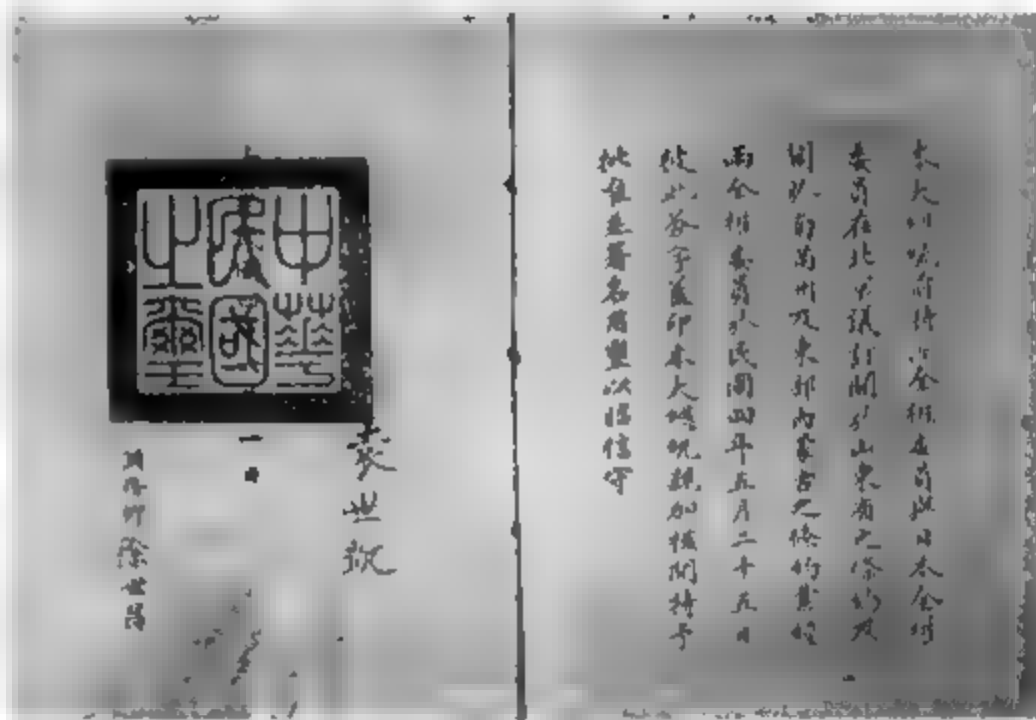 本大總統前特派全權委員與日本全權
委員在北京議訂關於山東省之條約及
關於南滿洲及東部內蒙古之條約業經
兩全權委員於民國四年五月二十五日
彼此簽字蓋印本大總統親加核閱特予
批准並署名用璽以昭信守
袁世凱
中華民國之璽
國務卿徐世昌